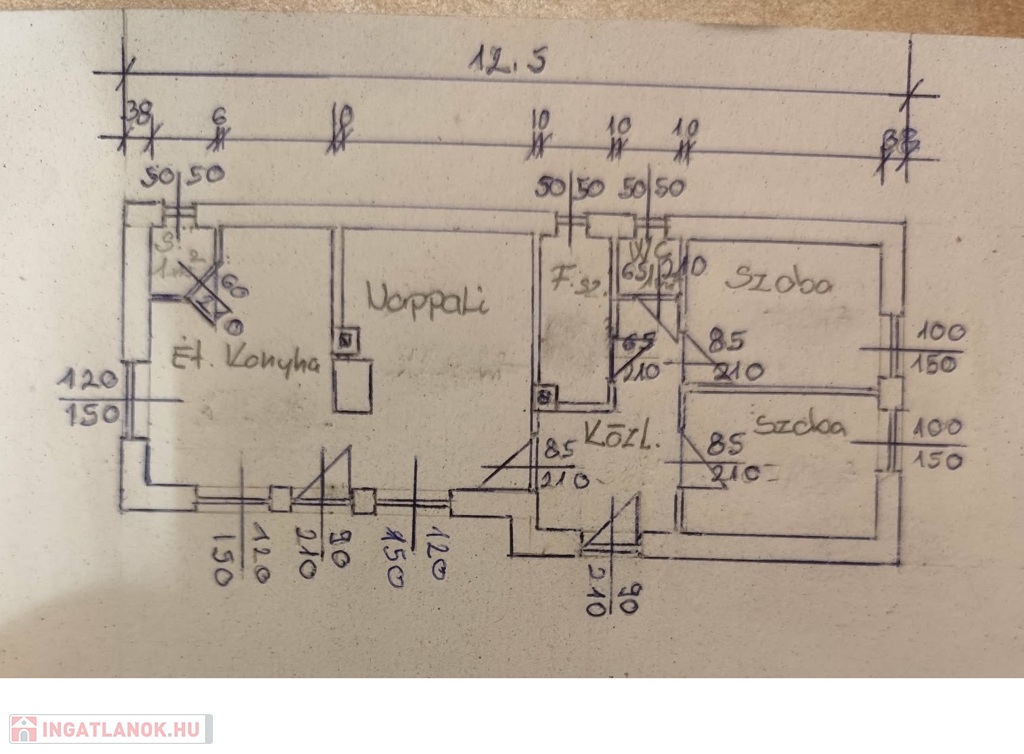 12.5
38
6
10
10
10
10
38
50 50
50 50
50 50
S.
1m²
60
210
WC
65 210
F.sz.
Szoba
Nappali
Ét. Konyha
65
210
85
210
100
150
120
150
Közl.
Szoba
85
210
85
210
100
150
150 120
210 90
150 120
210 90
INGATLANOK.HU